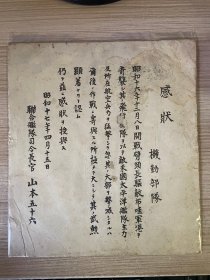 感狀
機動部隊
昭和十六年十二月八日開戰劈頭長驅敵布哇軍港ヲ
奇襲シ其ノ飛行機隊ヲ以テ敵米國太平洋艦隊主力
及所在航空兵力ヲ猛撃シテ忽チ其ノ大部ヲ撃滅シタルハ
爾後ノ作戰ニ寄與スル所極メテ大ニシテ其ノ武勲
顕著ナリト認ム
仍テ茲ニ感狀ヲ授與ス
昭和十七年四月十五日
聯合艦隊司令長官 山本五十六